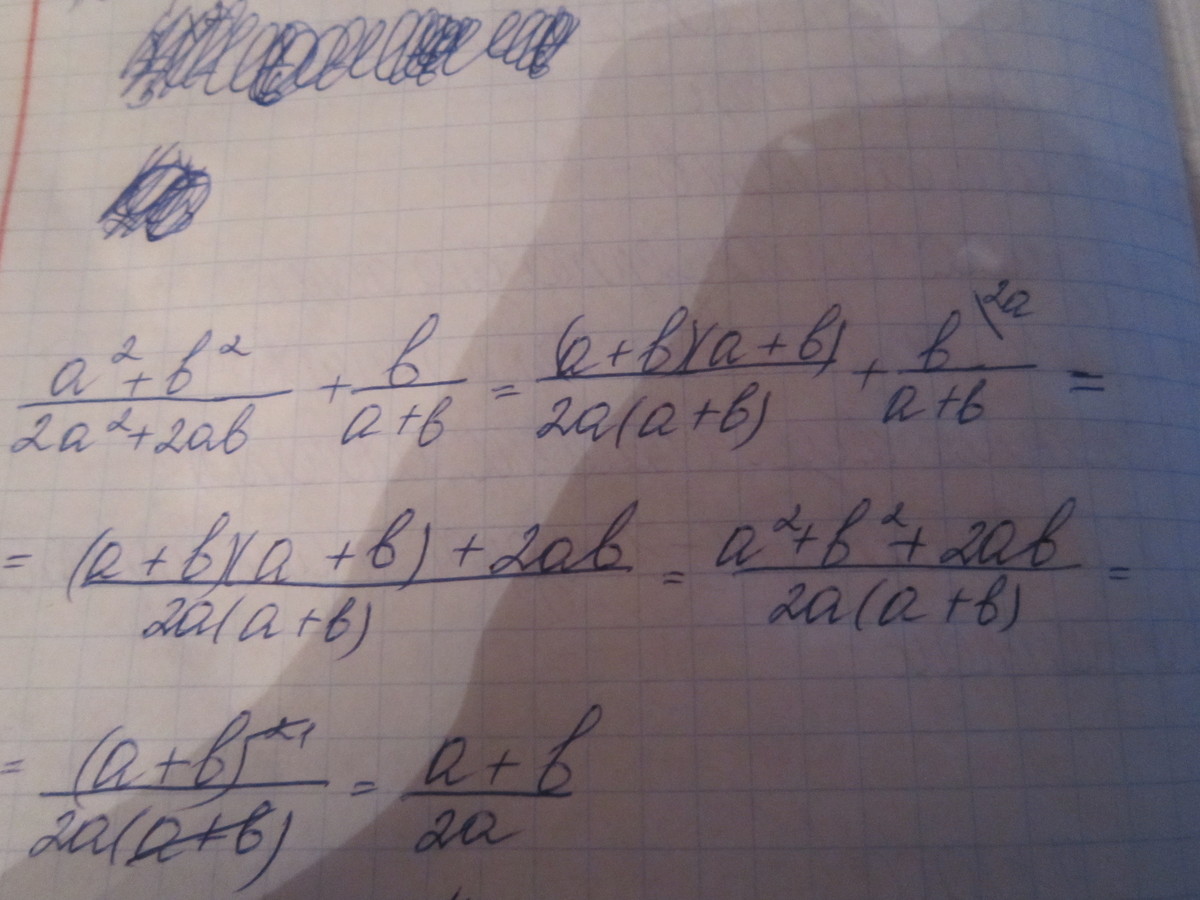 (a² + b²)/(2a² + 2ab) + b/(a + b) = ((a + b)(a + b))/(2a(a + b)) + b\2a/(a + b) =
= ((a + b)(a + b) + 2ab)/(2a(a + b)) = (a² + b² + 2ab)/(2a(a + b)) =
= (a + b)²¹/(2a(a + b)) = (a + b)/(2a)